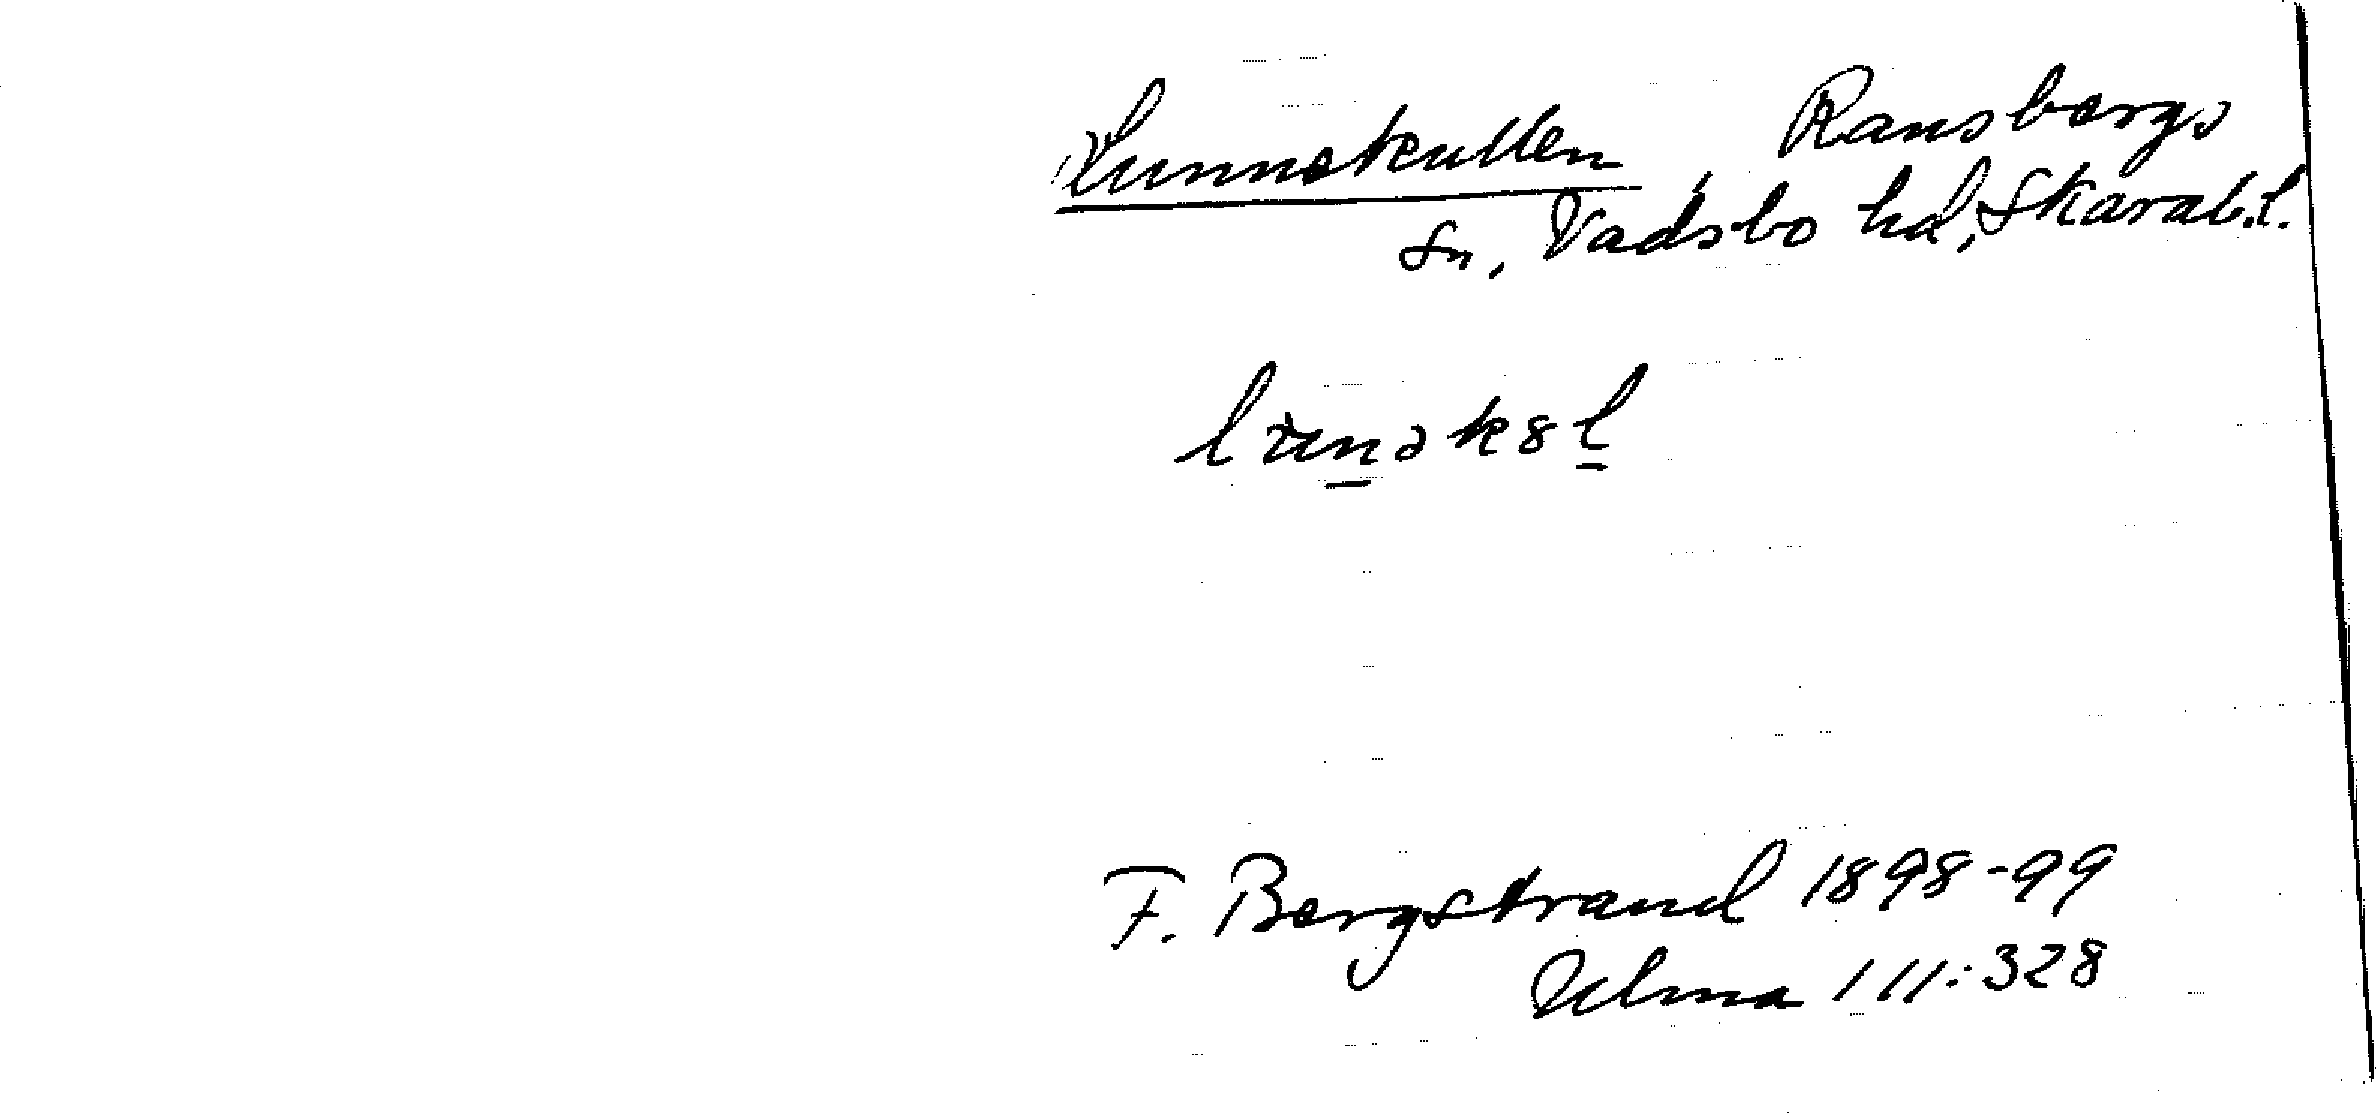 Lunnekullen, Ransbergs
sn, Vadsbo hd, Skarab.l.
F. Bergstrand 1898-99
Ulma 111:328